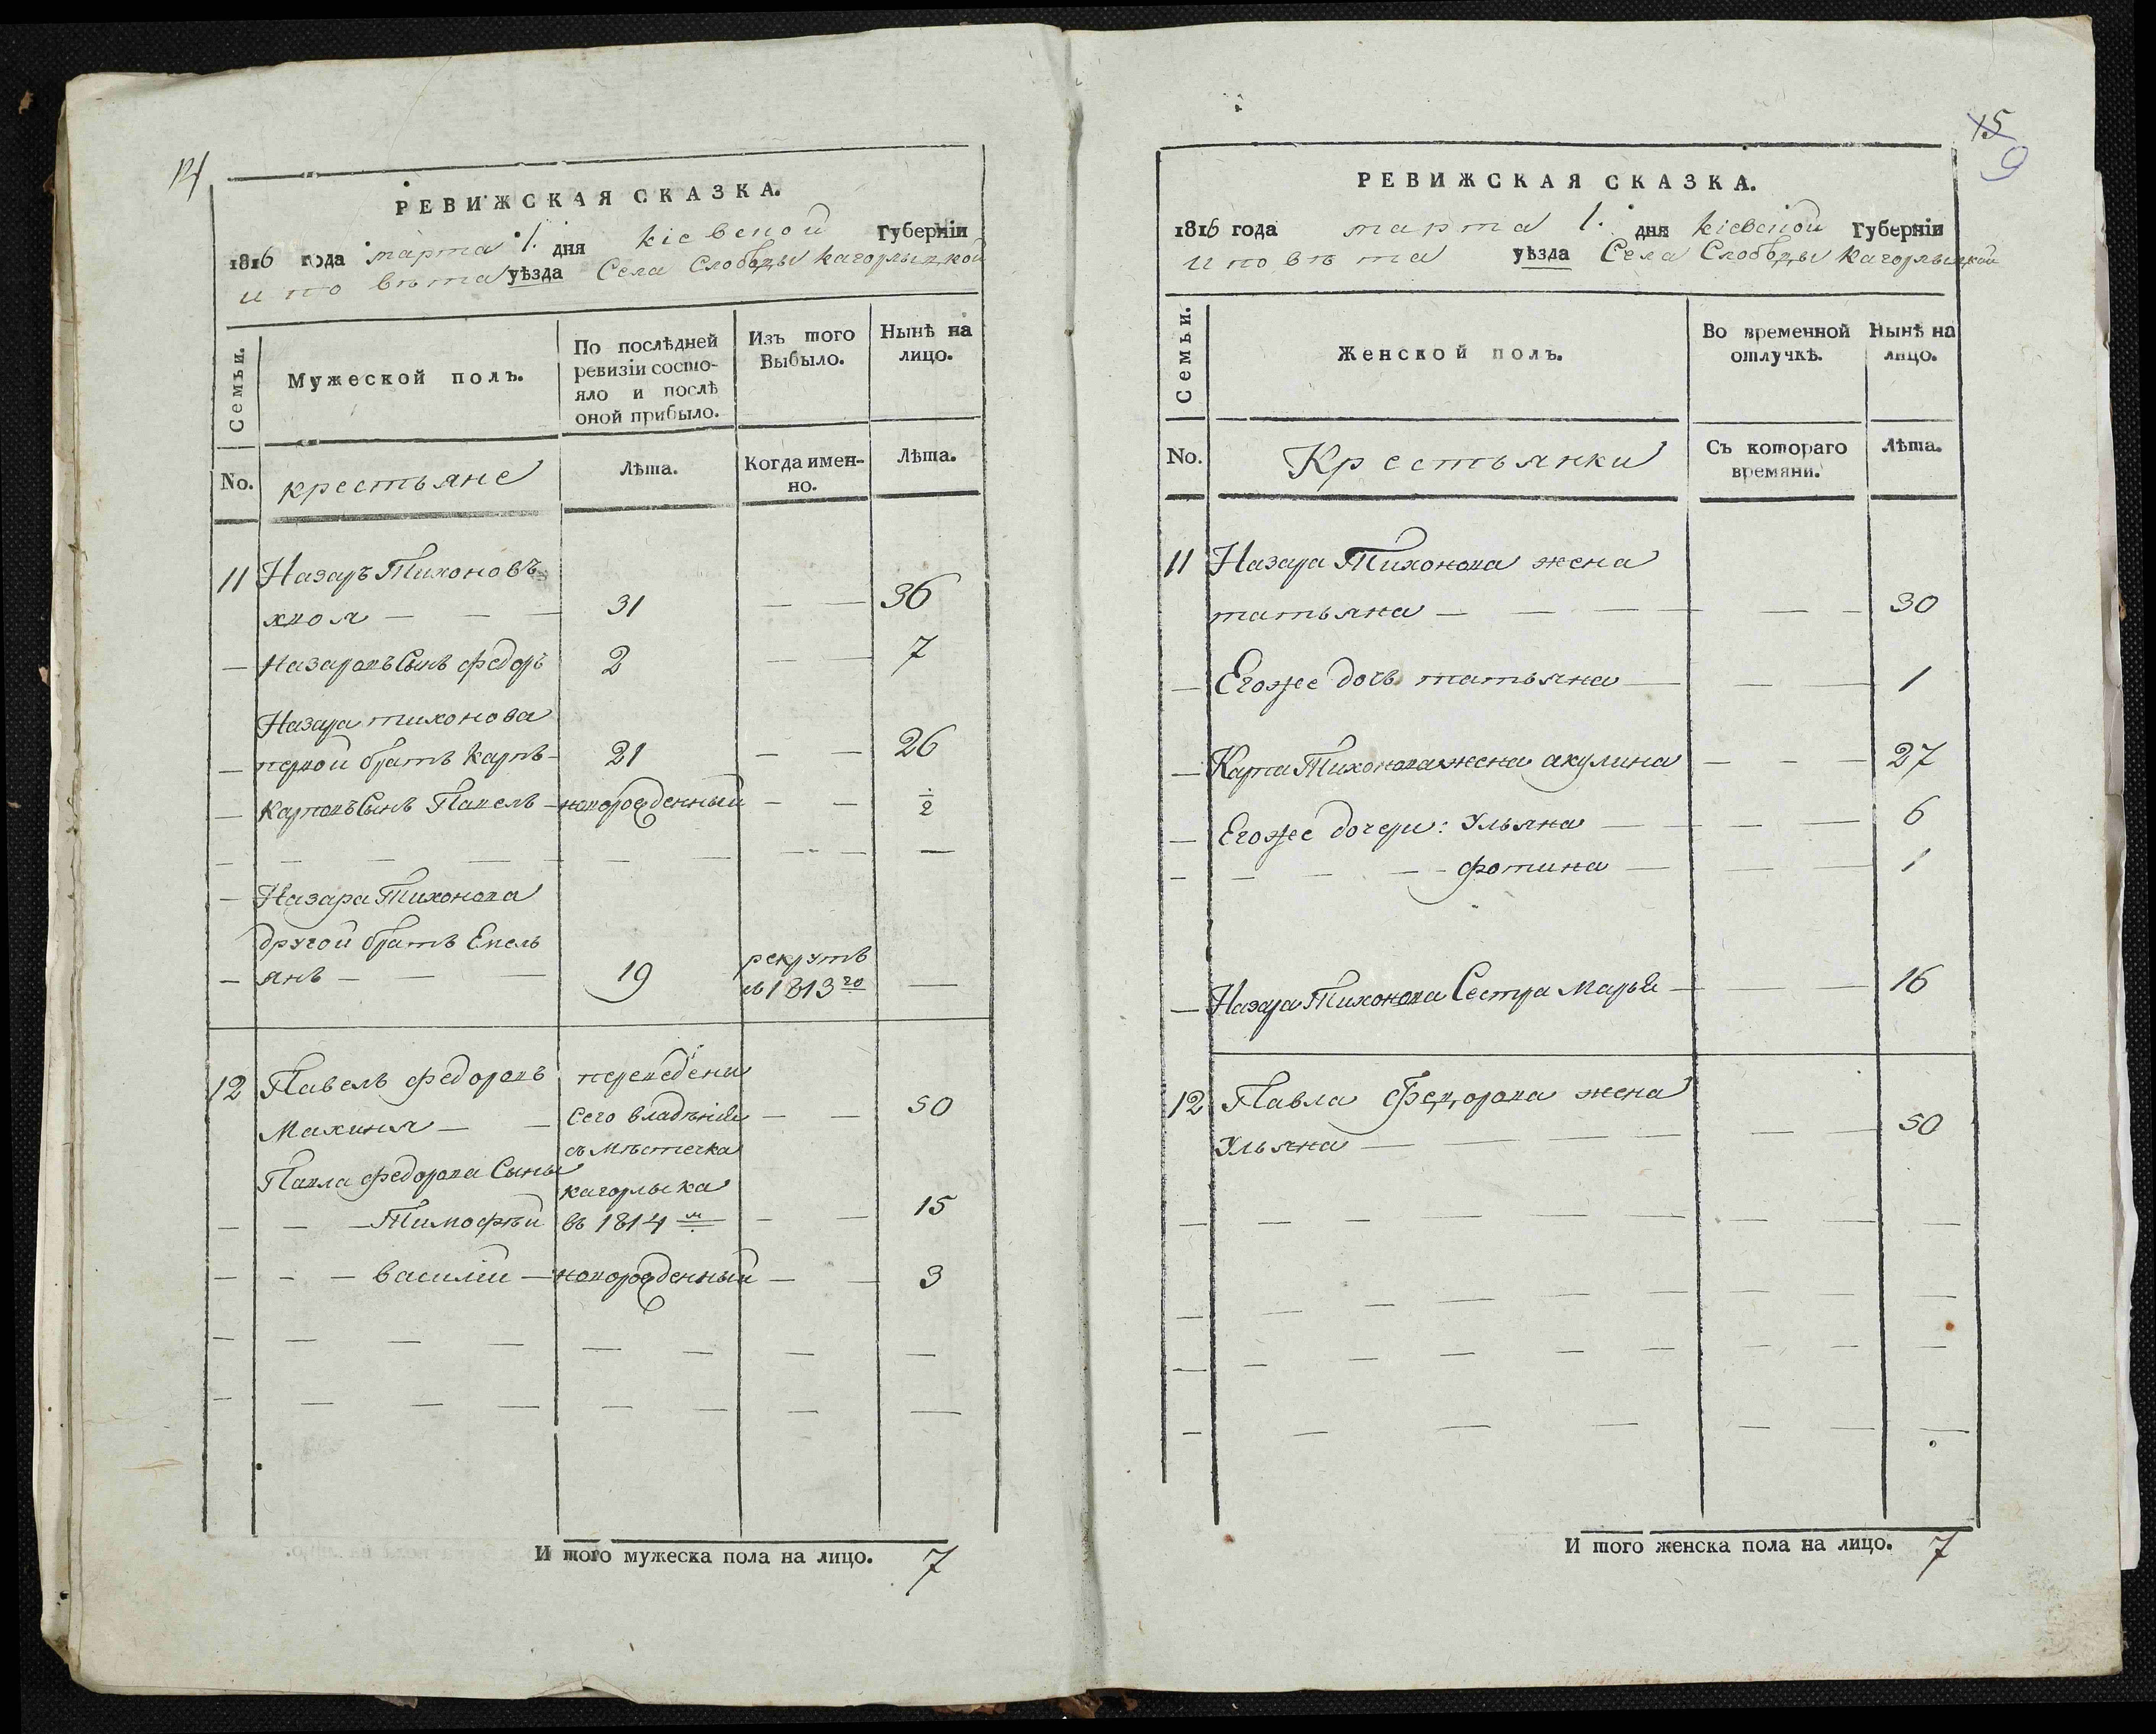 14
РЕВИЖСКАЯ СКАЗКА.
1816 года марта 1. дня кіевской Губерніи
и повѣта уѣзда Села Слободы кагорлыцкой
Семьи.
Мужеской полъ.
По послѣдней
ревизіи состо-
яло и послѣ
оной прибыло.
Изъ того
Выбыло.
Нынѣ на
лицо.
No.
крестьяне
Лѣта.
Когда имен-
но.
Лѣта.
11 Назаръ Тихоновъ
31 — — 36
— Назаровъ Сынъ федоръ 2 — — 7
Назара тихонова
— первой братъ Карпъ — 21 — — 26
— Карповъ Сынъ Павелъ — новорожденный — — ½
— Назара Тихонова
другой братъ Емель
— янъ — — — 19 рекрутъ
в 1813го —
12 Павелъ федоровъ переведены
Махиня — — Сего владѣнія — — 50
съ мѣстечка
Павла федорова Сыны кагорлыка
— — — Тимофѣй въ 1814м — — 15
— — — василій — новорожденный — — 3
И того мужеска пола на лицо. 7
15
9
РЕВИЖСКАЯ СКАЗКА.
1816 года марта 1. дня кіевской Губерніи
и повѣта уѣзда Села Слободы Кагорлыцкой
Семьи.
Женской полъ.
Во временной
отлучкѣ.
Нынѣ на
лицо.
No.
Крестьянки
Съ котораго
времяни.
Лѣта.
11 Назара Тихонова жена
татьяна — — — — — — 30
— Егоже дочь татьяна — — — 1
— Карпа Тихонова жена акулина — — — 27
— Егоже дочери: Ульяна — — — 6
— — — — — фотина — — — 1
— Назара Тихонова Сестра Марья — — — 16
12 Павла Федорова жена
Ульяна — — — — — — 50
И того женска пола на лицо. 7